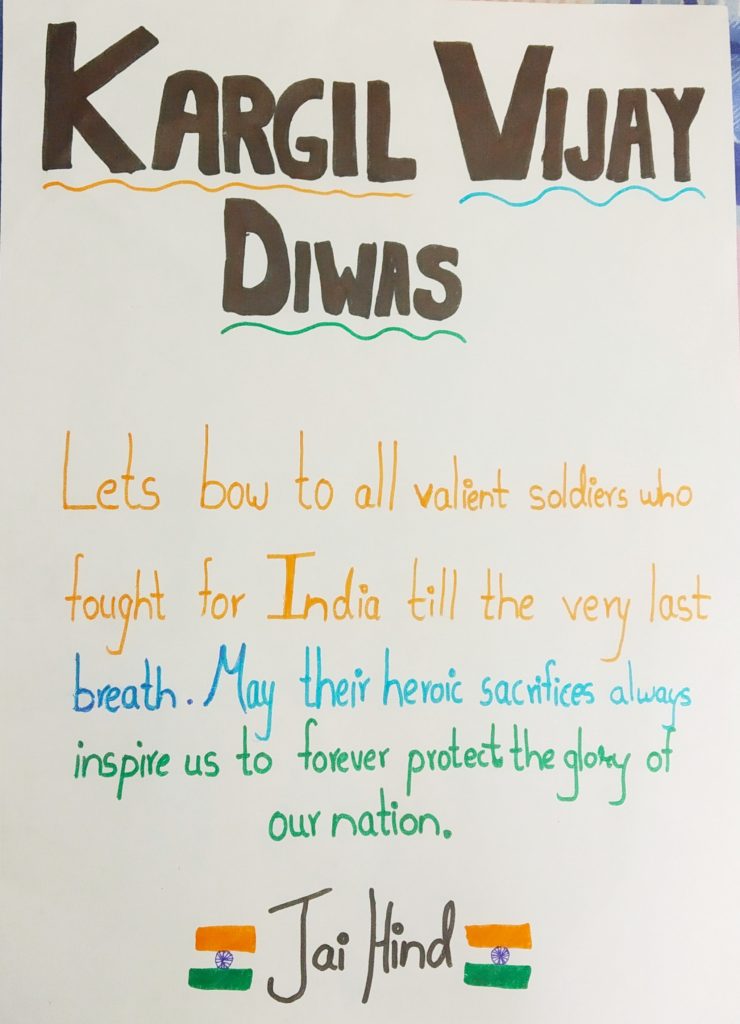 KARGIL VIJAY
DIWAS
Lets bow to all valient soldiers who
fought for India till the very last
breath. May their heroic sacrifices always
inspire us to forever protect the glory of
our nation.
Jai Hind